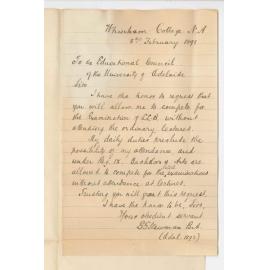 Whinham College N.A
5th February 1892
To the Educational Council
of the University of Adelaide
Sirs
I have the honor to request that
you will allow me to compete for
the Examination of LL.B. without
attending the ordinary lectures.
My daily duties preclude the
possibility of my attendance and
under Reg. IX. Bachelors of Arts are
allowed to compete for the examinations
without attendance at lectures.
Trusting you will grant this request,
I have the honor to be, Sirs,
Your obedient servant
Newman
(Adel. 1892)